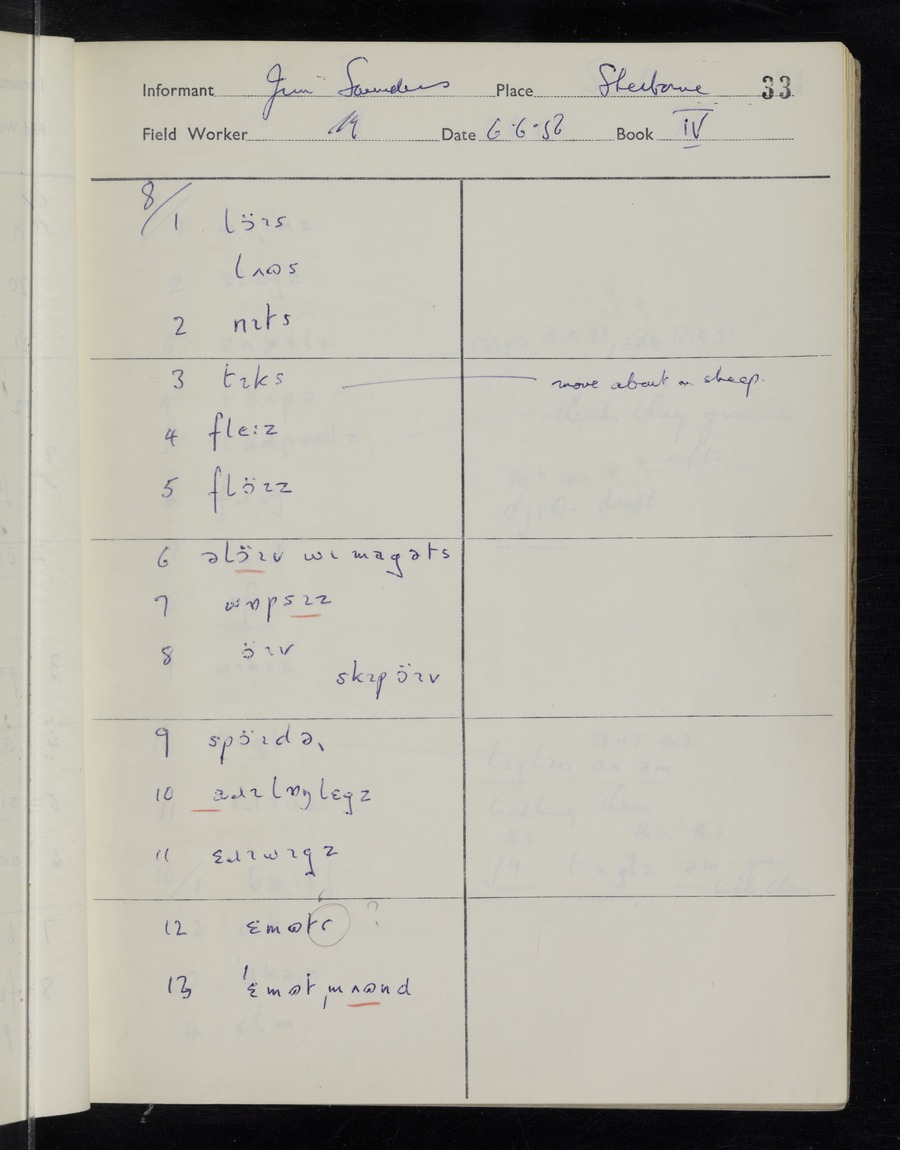 Informant Jim Saunders Place Sherborne 33
Field Worker Date 6·6·56 Book IV
8/1 lɔ̈ɪs
lʌɷs
2 nɪts
3 tɪks move about on sheep.
4 fleːz
5 flɔ̈ɪz
6 əlɔ̈ɪv wɪ magəts
7 wɒpsɪz
8 ɔ̈ɪv
skɪp ɔ̈ɪv
9 spɔ̈ɪdəɹ
10 lɒŋlɛgz
11 ɛɹɪwɪgz
12 ɛmɷt ?
13 ˈɛmɷtˌmʌɷnd